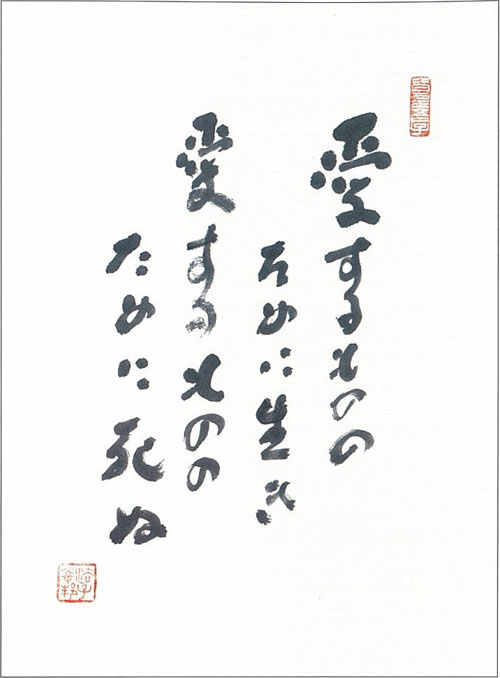 愛するものの
ために生き
愛するものの
ために死ぬ